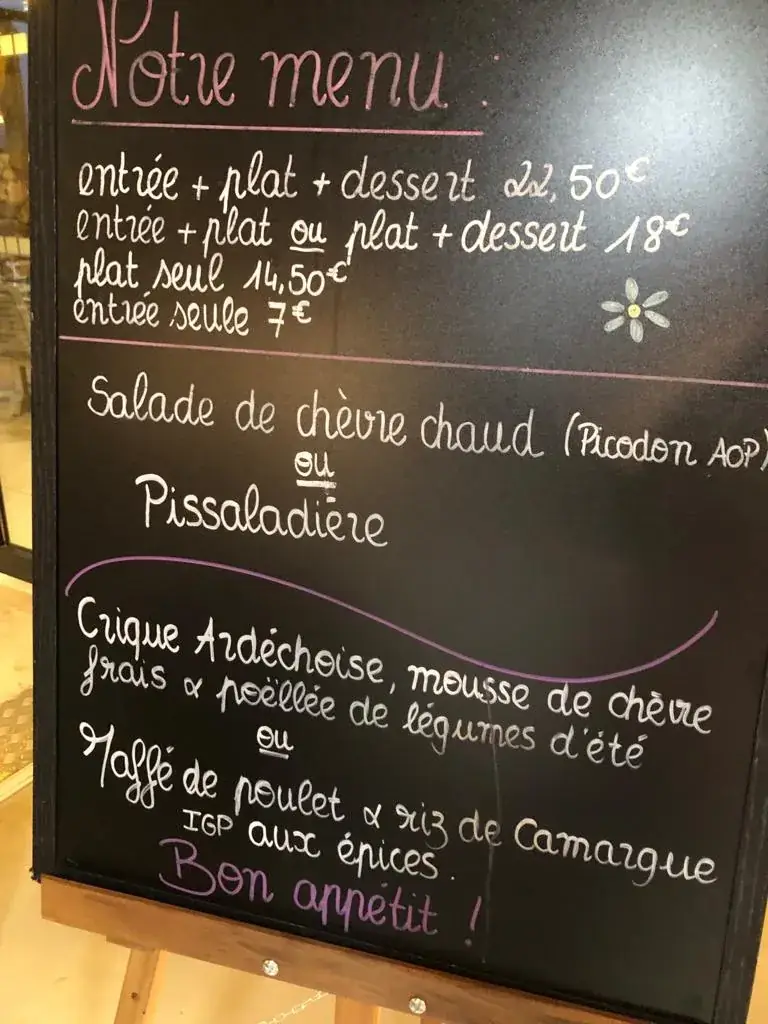 Notre menu :
entrée + plat + dessert 22,50€
entrée + plat ou plat + dessert 18€
plat seul 14,50€
entrée seule 7€
Salade de chèvre chaud (Picodon AOP)
ou
Pissaladière
Crique Ardéchoise, mousse de chèvre
frais & poëllée de légumes d'été
ou
Maffé de poulet & riz de Camargue
IGP aux épices.
Bon appétit !